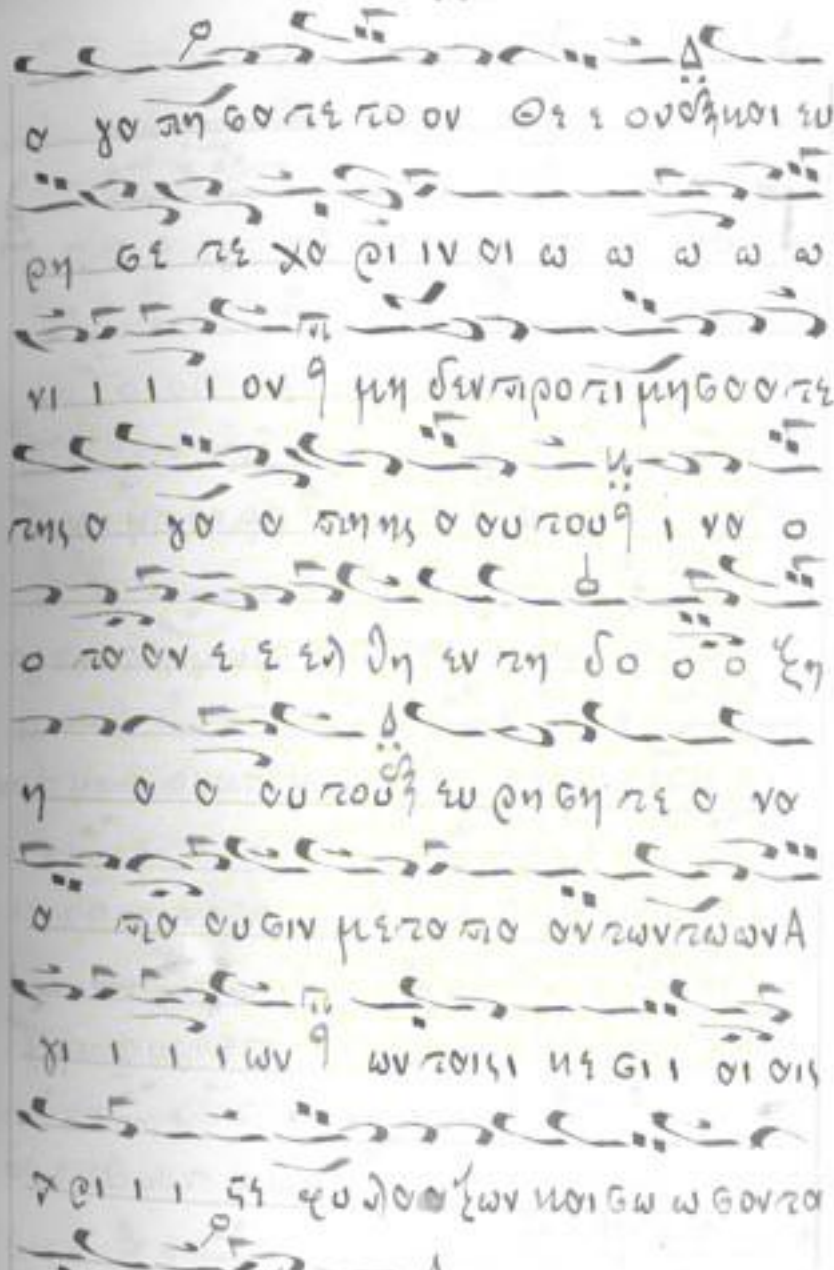 α γα πη σα τε το ον Θε ε ον και ευ
ρη σε τε χα ρι ιν αι ω ω ω ω ω
νι ι ι ι ον μη δεν προ τι μη σα α τε
της α γα α πη ης α αυ του ι να ο
ο τα αν ε ε ελ θη εν τη δο ο ο ξη
η α α αυ του ευ ρη ση τε α να
α πα αυ σιν με τα πα αν των τω ων Α
γι ι ι ι ων ων ταις ι κε σι ι αι αις
Χρι ι ι στε φυ λα α ξων και σω ω σον τα